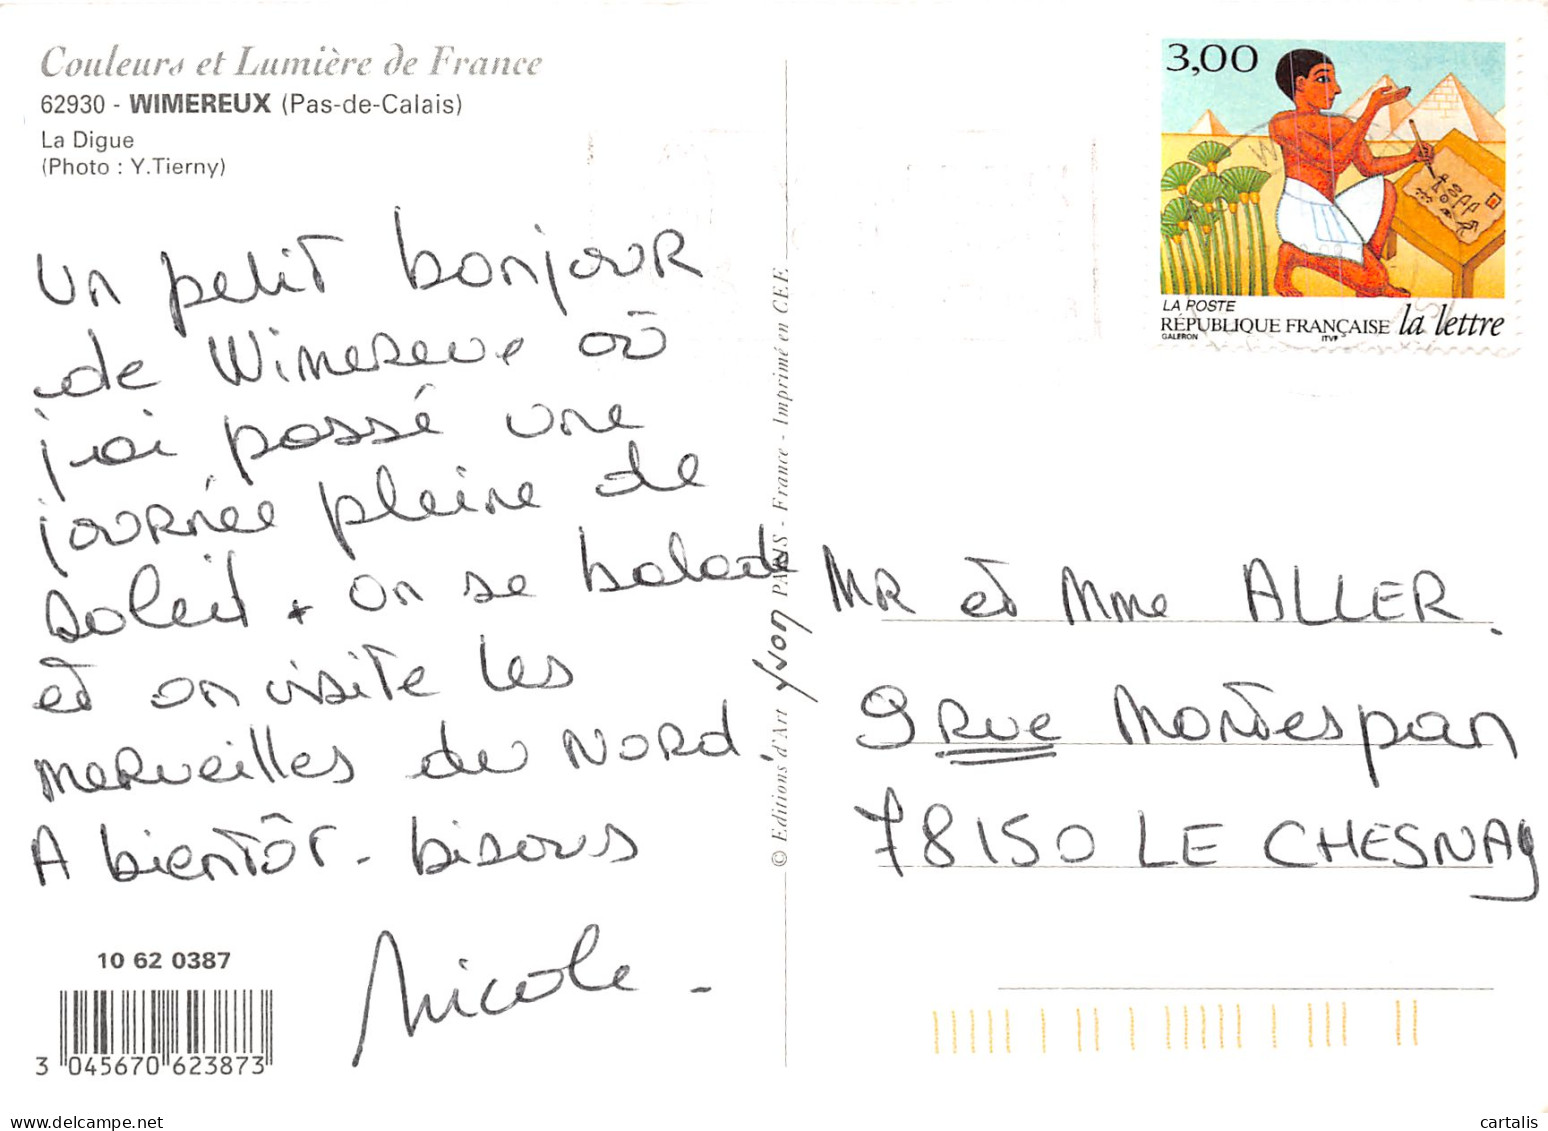 Couleurs et Lumière de France
62930 - WIMEREUX (Pas-de-Calais)
La Digue
(Photo : Y.Tierny)
Un petit bonjour
de Wimereux où
j'ai passé une
journée pleine de
soleil. on se balade
et on visite les
merveilles du NORD.
A bientôt. bisous
Nicole.
10 62 0387
3 045670 623873
© Editions d'Art YVON PARIS - France - Imprimé en CEE
3,00
LA POSTE
RÉPUBLIQUE FRANÇAISE la lettre
GALERON ITVF
MR et Mme ALLER.
9 Rue Montespan
78150 LE CHESNAY
cartalis